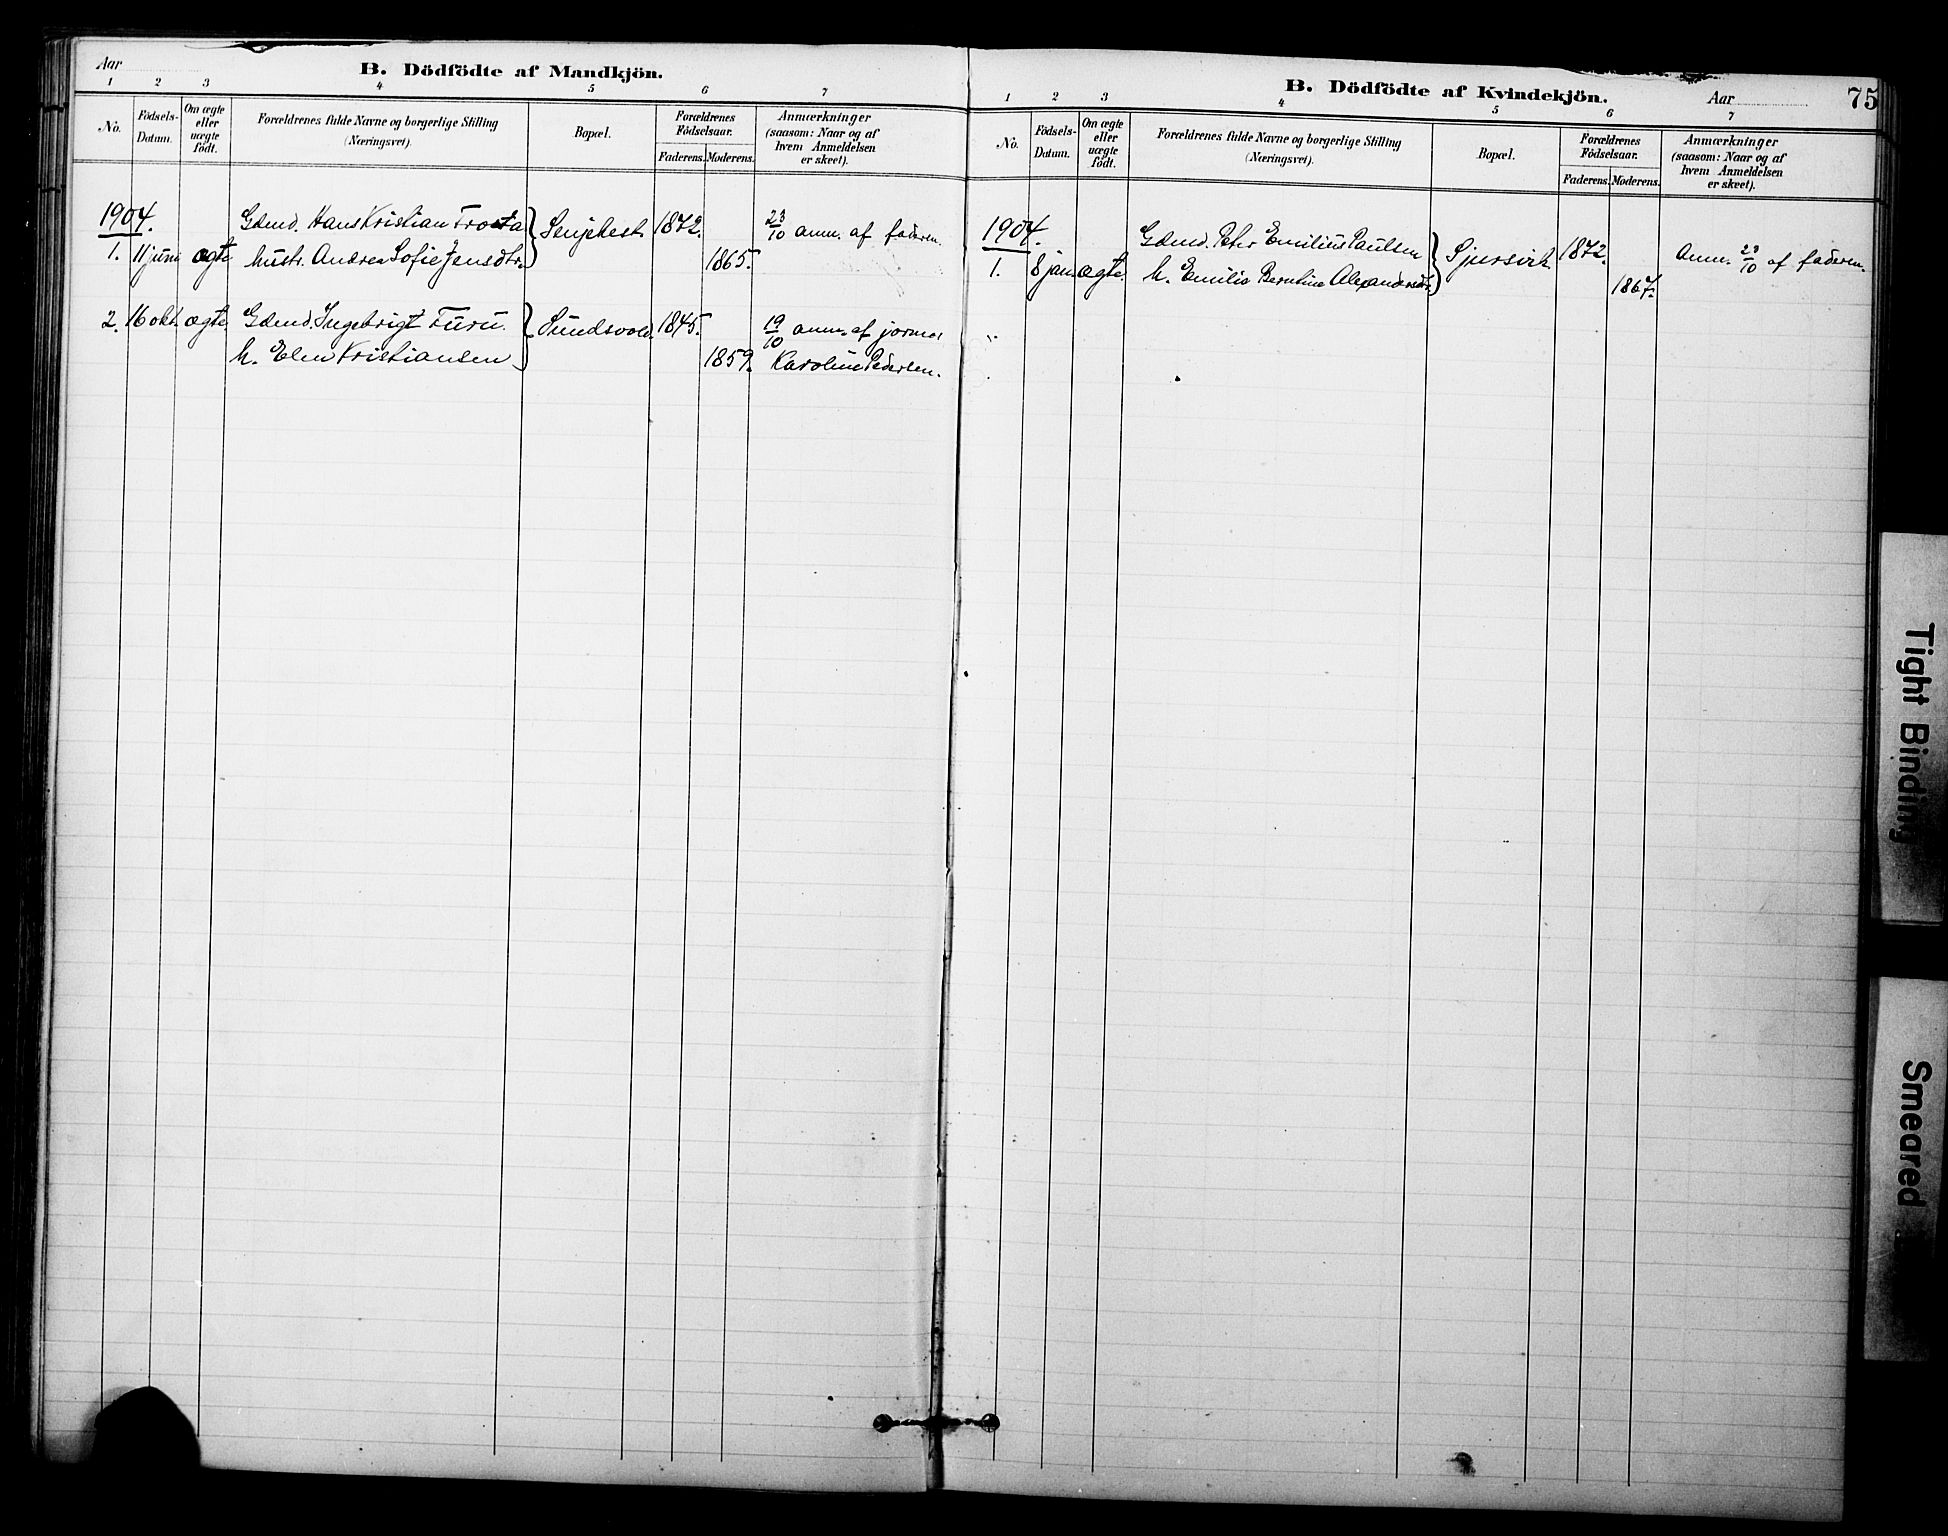 Aar
B. Dödfödte af Mandkjön.
1 2 3 4 5 6 7
No.
Födsels-
Datum.
Om ægte
eller
uægte
födt.
Forældrenes fulde Navne og borgerlige Stilling
(Næringsvei).
Bopæl.
Forældrenes
Födselsaar.
Faderens. Moderens.
Anmærkninger
(saasom: Naar og af
hvem Anmeldelsen
er skeet).
1904.
Gdmd. Hans Kristian Trosta Senjehest. 1872. 23/10 anm. af faderen.
1. 11 juni ægte hustr. Andrea Sofie Jensdtr. 1865.
2. 16 okt. ægte Gdmd. Ingebrigt Furu. Sundsvold. 1845. 19/10 anm. af jormor
h. Elen Kristiansen 1859. Karoline Pedersen.
B. Dödfödte af Kvindekjön.
Aar
75
1 2 3 4 5 6 7
No.
Födsels-
Datum.
Om ægte
eller
uægte
födt.
Forældrenes fulde Navne og borgerlige Stilling
(Næringsvei).
Bopæl.
Forældrenes
Födselsaar.
Faderens. Moderens.
Anmærkninger
(saasom: Naar og af
hvem Anmeldelsen
er skeet).
1904.
Gdmd. Peter Emilius Paulsen Sjursvik 1872. Anm. 23/10 af faderen.
1. 8 jan. ægte. h. Emilie Berntine Alexandersdtr. 1867.
Tight Binding
Smeared